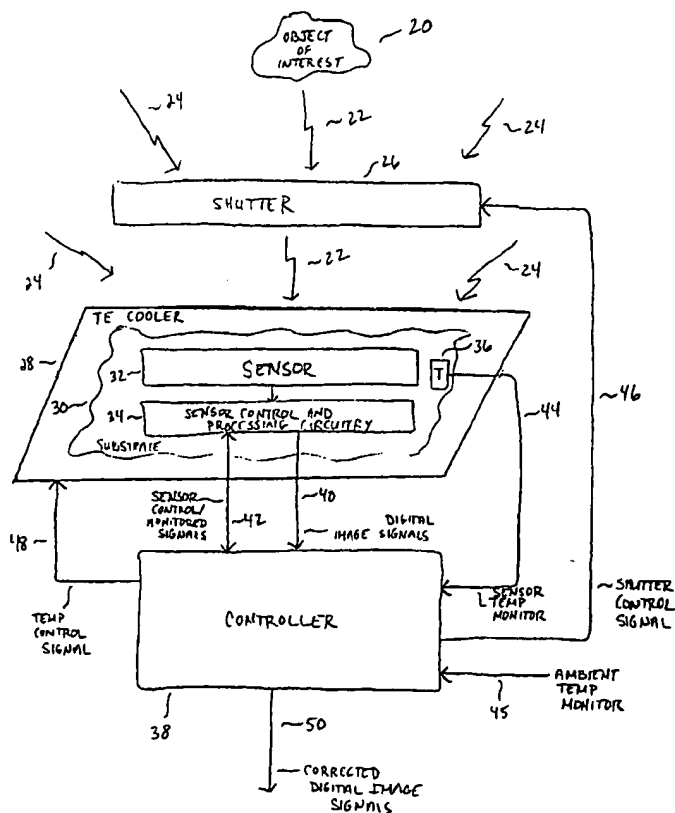 20
OBJECT
OF
INTEREST
24
22
24
26
SHUTTER
24
22
24
TE COOLER
28
36
32
SENSOR
T
30
34
SENSOR CONTROL AND
PROCESSING CIRCUITRY
SUBSTRATE
44
46
SENSOR
CONTROL/
MONITORED
SIGNALS
42
40
DIGITAL
IMAGE SIGNALS
48
TEMP
CONTROL
SIGNAL
CONTROLLER
SENSOR
TEMP
MONITOR
SHUTTER
CONTROL
SIGNAL
AMBIENT
TEMP
MONITOR
45
38
50
CORRECTED
DIGITAL IMAGE
SIGNALS